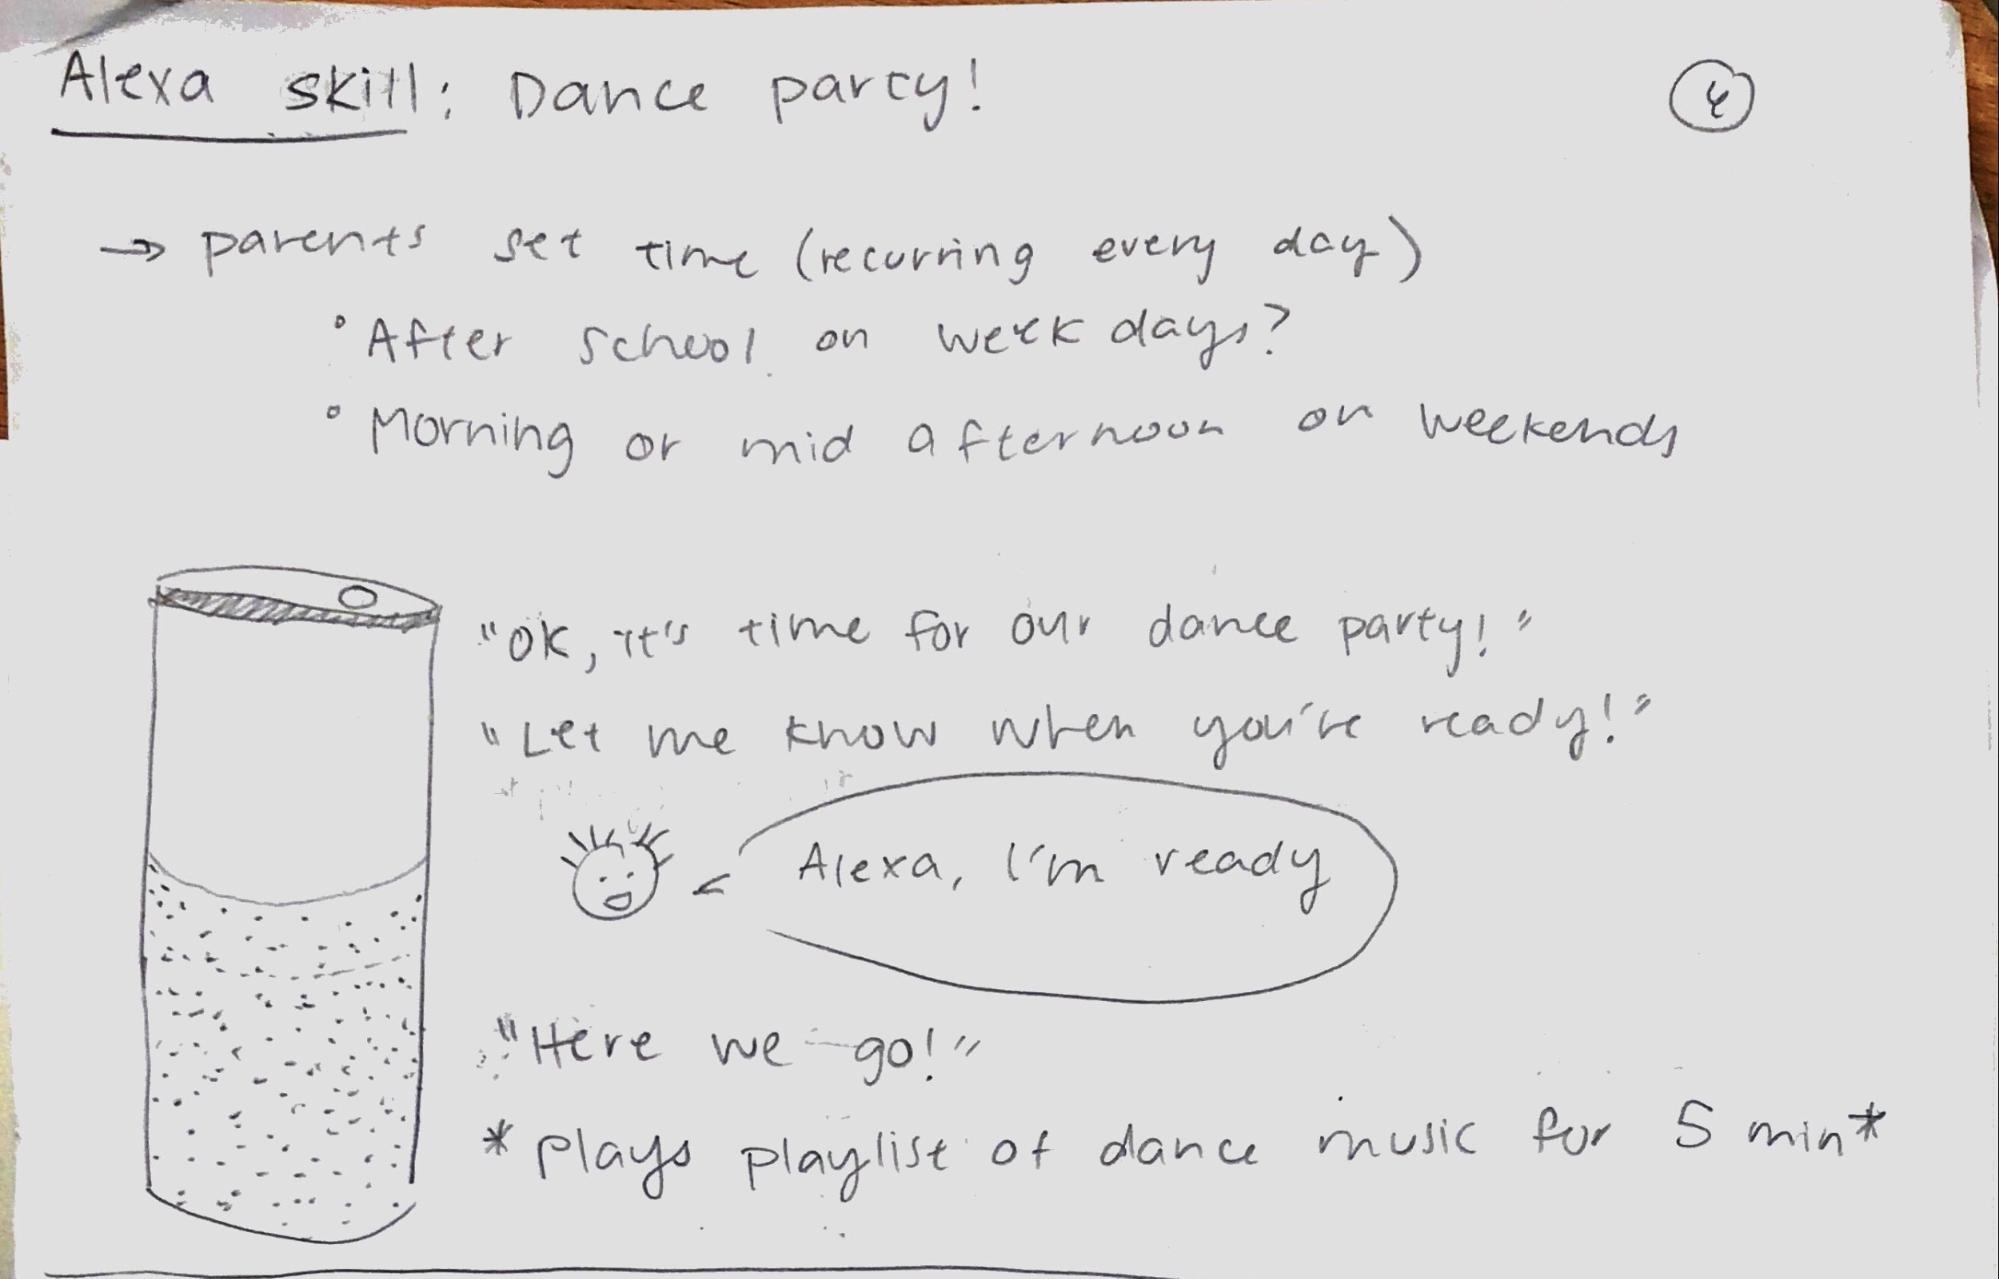 Alexa skill: Dance party!
→ parents set time (recurring every day)
° After school on week days?
° Morning or mid afternoon on weekends
"OK, it's time for our dance party!"
"Let me know when you're ready!"
Alexa, I'm ready
"Here we go!"
*plays playlist of dance music for 5 min*